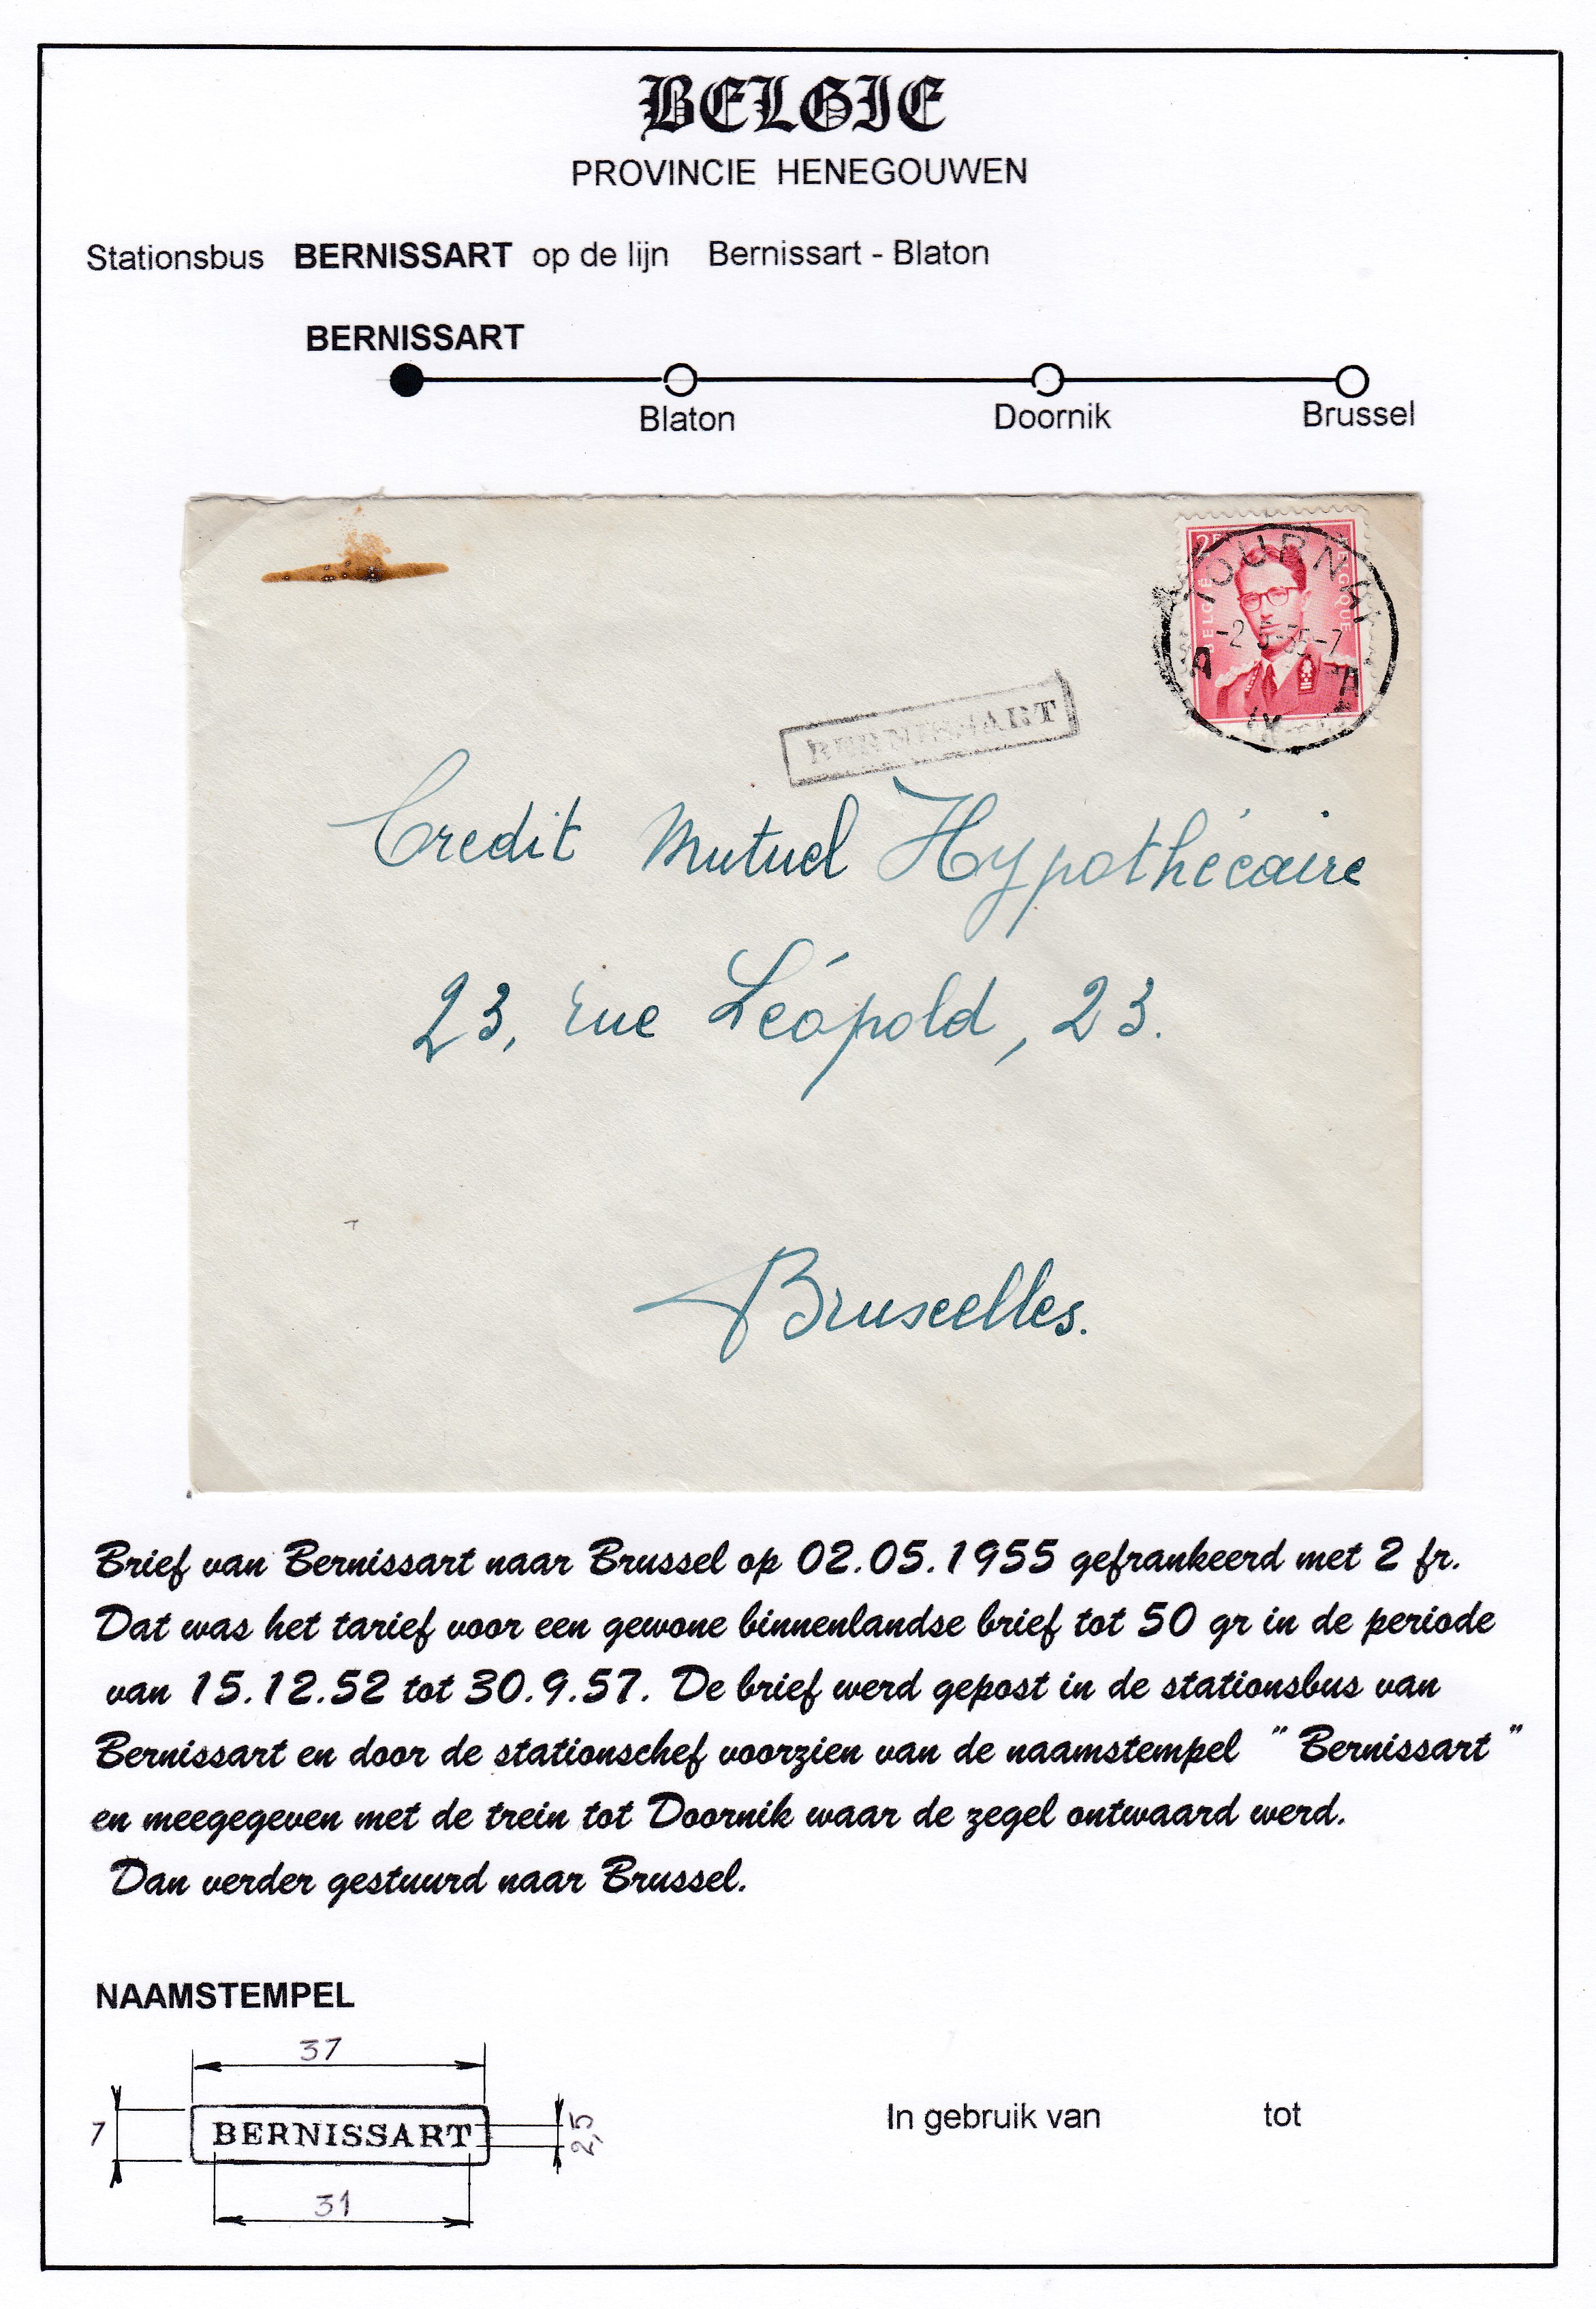 BELGIE
PROVINCIE HENEGOUWEN
Stationsbus BERNISSART op de lijn Bernissart - Blaton
BERNISSART
Blaton Doornik Brussel
2F
BELGIË BELGIQUE
TOURNAI
-2 5-55-7
A A
BERNISSART
Credit Mutuel Hypothécaire
23, rue Léopold, 23.
Bruxelles.
Brief van Bernissart naar Brussel op 02.05.1955 gefrankeerd met 2 fr.
Dat was het tarief voor een gewone binnenlandse brief tot 50 gr in de periode
van 15.12.52 tot 30.9.57. De brief werd gepost in de stationsbus van
Bernissart en door de stationschef voorzien van de naamstempel " Bernissart "
en meegegeven met de trein tot Doornik waar de zegel ontwaard werd.
Dan verder gestuurd naar Brussel.
NAAMSTEMPEL
37
7 BERNISSART 2,5
31
In gebruik van tot